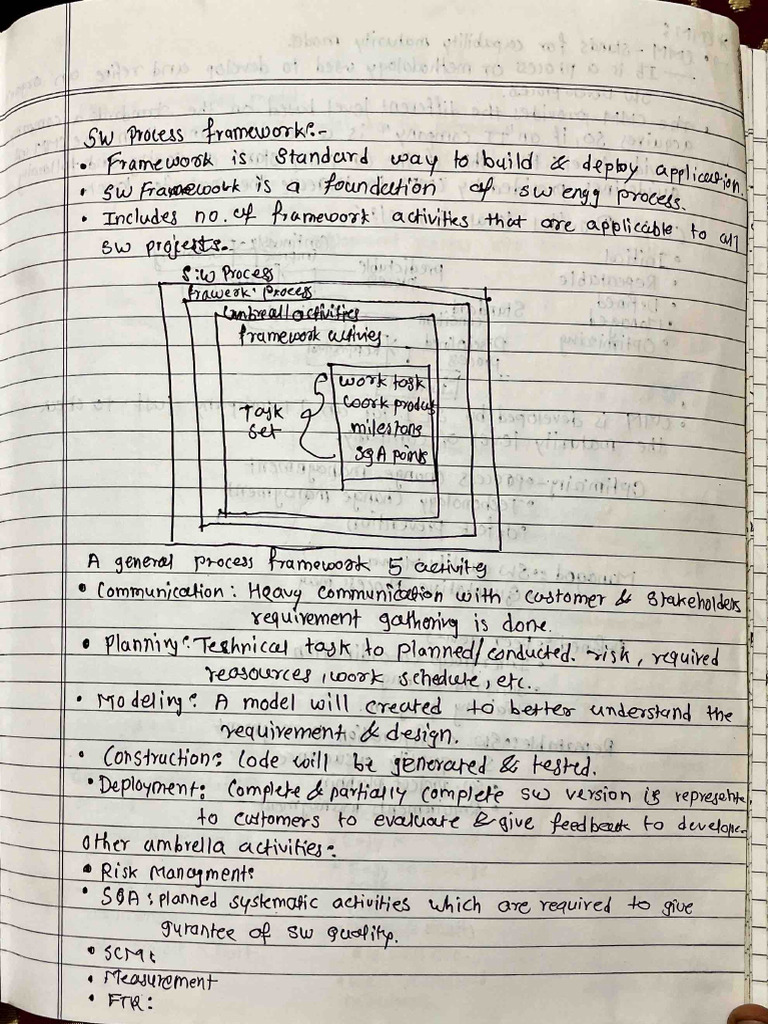 SW Process framework:-
• Framework is standard way to build & deploy application.
• SW Framework is a foundation of sw engg process.
• Includes no. of framework activities that are applicable to all
sw projects.-
S:W Process
frawerk process
Umbrella activities
framework activies
work task
Task
set
work produt
milestons
SQA points
A general process framework 5 activity
• Communication: Heavy communication with customer & stakeholders
requirement gathering is done.
• Planning: Technical task to planned/conducted. risk, required
reasources, work schedule, etc.
• Modeling: A model will created to better understand the
requirement & design.
• Construction: Code will be generated & tested.
• Deployment: Complete & partially complete sw version is represente
to customers to evaluate & give feedback to develope
Other umbrella activities:
• Risk Managment:
• SQA: planned systematic activities which are required to give
gurantee of sw quality.
• SCM:
• Measurement
• FTR: